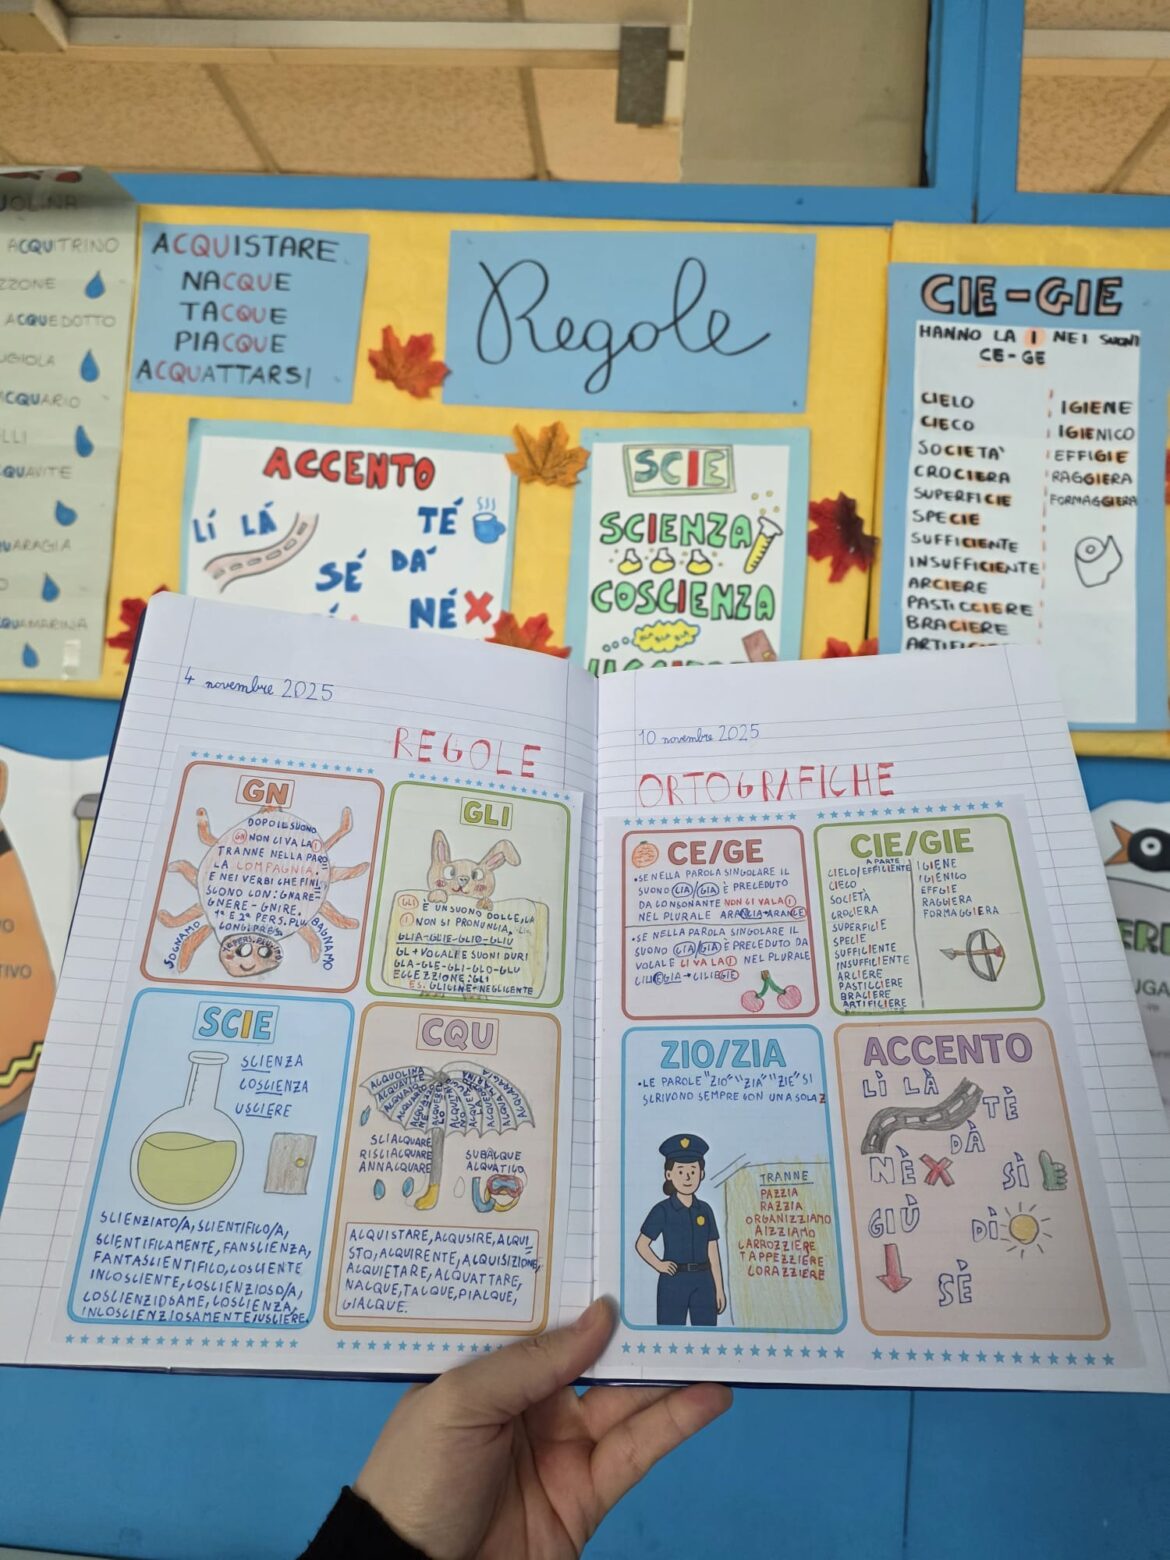 ACQUITRINO
ACQUEDOTTO
ACQUISTARE
NACQUE
TACQUE
PIACQUE
ACQUATTARSI
Regole
CIE-GIE
HANNO LA I NEI SUONI
CE-GE
CIELO
CIECO
SOCIETA'
CROCIERA
SUPERFICIE
SPECIE
SUFFICIENTE
INSUFFICIENTE
ARCIERE
PASTICCIERE
BRACIERE
IGIENE
IGIENICO
EFFIGIE
RAGGIERA
FORMAGGIERA
ACCENTO
LÍ LÁ
TÉ
SÉ
DÁ
NÉ
SCIE
SCIENZA
COSCIENZA
4 novembre 2025
REGOLE
GN
DOPO IL SUONO
GN NON CI VA LA I
TRANNE NELLA PAROLA
LA COMPAGNIA.
E NEI VERBI CHE FINI
SCONO CON: GNARE-
GNERE-GNIRE.
1ª E 2ª PERS. PLU
CONG. PRES.
SOGNAMO
BAGNAMO
GLI
GLI È UN SUONO DOLCE, LA
I NON SI PRONUNCIA.
GLIA-GLIE-GLIO-GLIU
GL + VOCALI E SUONI DURI
GLA-GLE-GLI-GLO-GLU
ECCEZZIONE: GLI
ES. GLICINE-NEGLIGENTE
SCIE
SCIENZA
COSCIENZA
USCIERE
SCIENZIATO/A, SCIENTIFICO/A,
SCIENTIFICAMENTE, FANSCIENZA,
FANTASCIENTIFICO, COSCIENTE
INCOSCIENTE, COSCIENZIOSO/A,
COSCIENZIOSAME, COSCIENZA,
INCOSCIENZIOSAMENTE, USCIERE.
CQU
ACQUOLINA
ACQUAVITE
SCIACQUARE
RISCIACQUARE
ANNACQUARE
SUBACQUE
ACQUATICO
ACQUISTARE, ACQUSIRE, ACQUI
STO, ACQUIRENTE, ACQUISIZIONE,
ACQUIETARE, ACQUATTARE,
NACQUE, TACQUE, PIACQUE,
GIACQUE.
10 novembre 2025
ORTOGRAFICHE
CE/GE
•SE NELLA PAROLA SINGOLARE IL
SUONO CIA/GIA È PRECEDUTO
DA CONSONANTE NON CI VA LA I
NEL PLURALE ARANCIA→ARANCE
•SE NELLA PAROLA SINGOLARE IL
SUONO CIA/GIA È PRECEDUTO DA
VOCALE CI VA LA I NEL PLURALE
CILIEGIA→CILIEGIE
CIE/GIE
A PARTE
CIELO/EFFICIENTE
CIECO
SOCIETÀ
CROCIERA
SUPERFICIE
SPECIE
SUFFICIENTE
INSUFFICIENTE
ARCIERE
PASTICCIERE
BRACIERE
ARTIFICIERE
IGIENE
IGIENICO
EFFIGIE
RAGGIERA
FORMAGGIERA
ZIO/ZIA
•LE PAROLE "ZIO" "ZIA" "ZIE" SI
SCRIVONO SEMPRE CON UNA SOLA Z
TRANNE
PAZZIA
RAZZIA
ORGANIZZIAMO
AIZZIAMO
CARROZZIERE
TAPPEZZIERE
CORAZZIERE
ACCENTO
LÌ LÀ
TÈ
DÀ
NÈ
SÌ
GIÙ
DÌ
SÈ